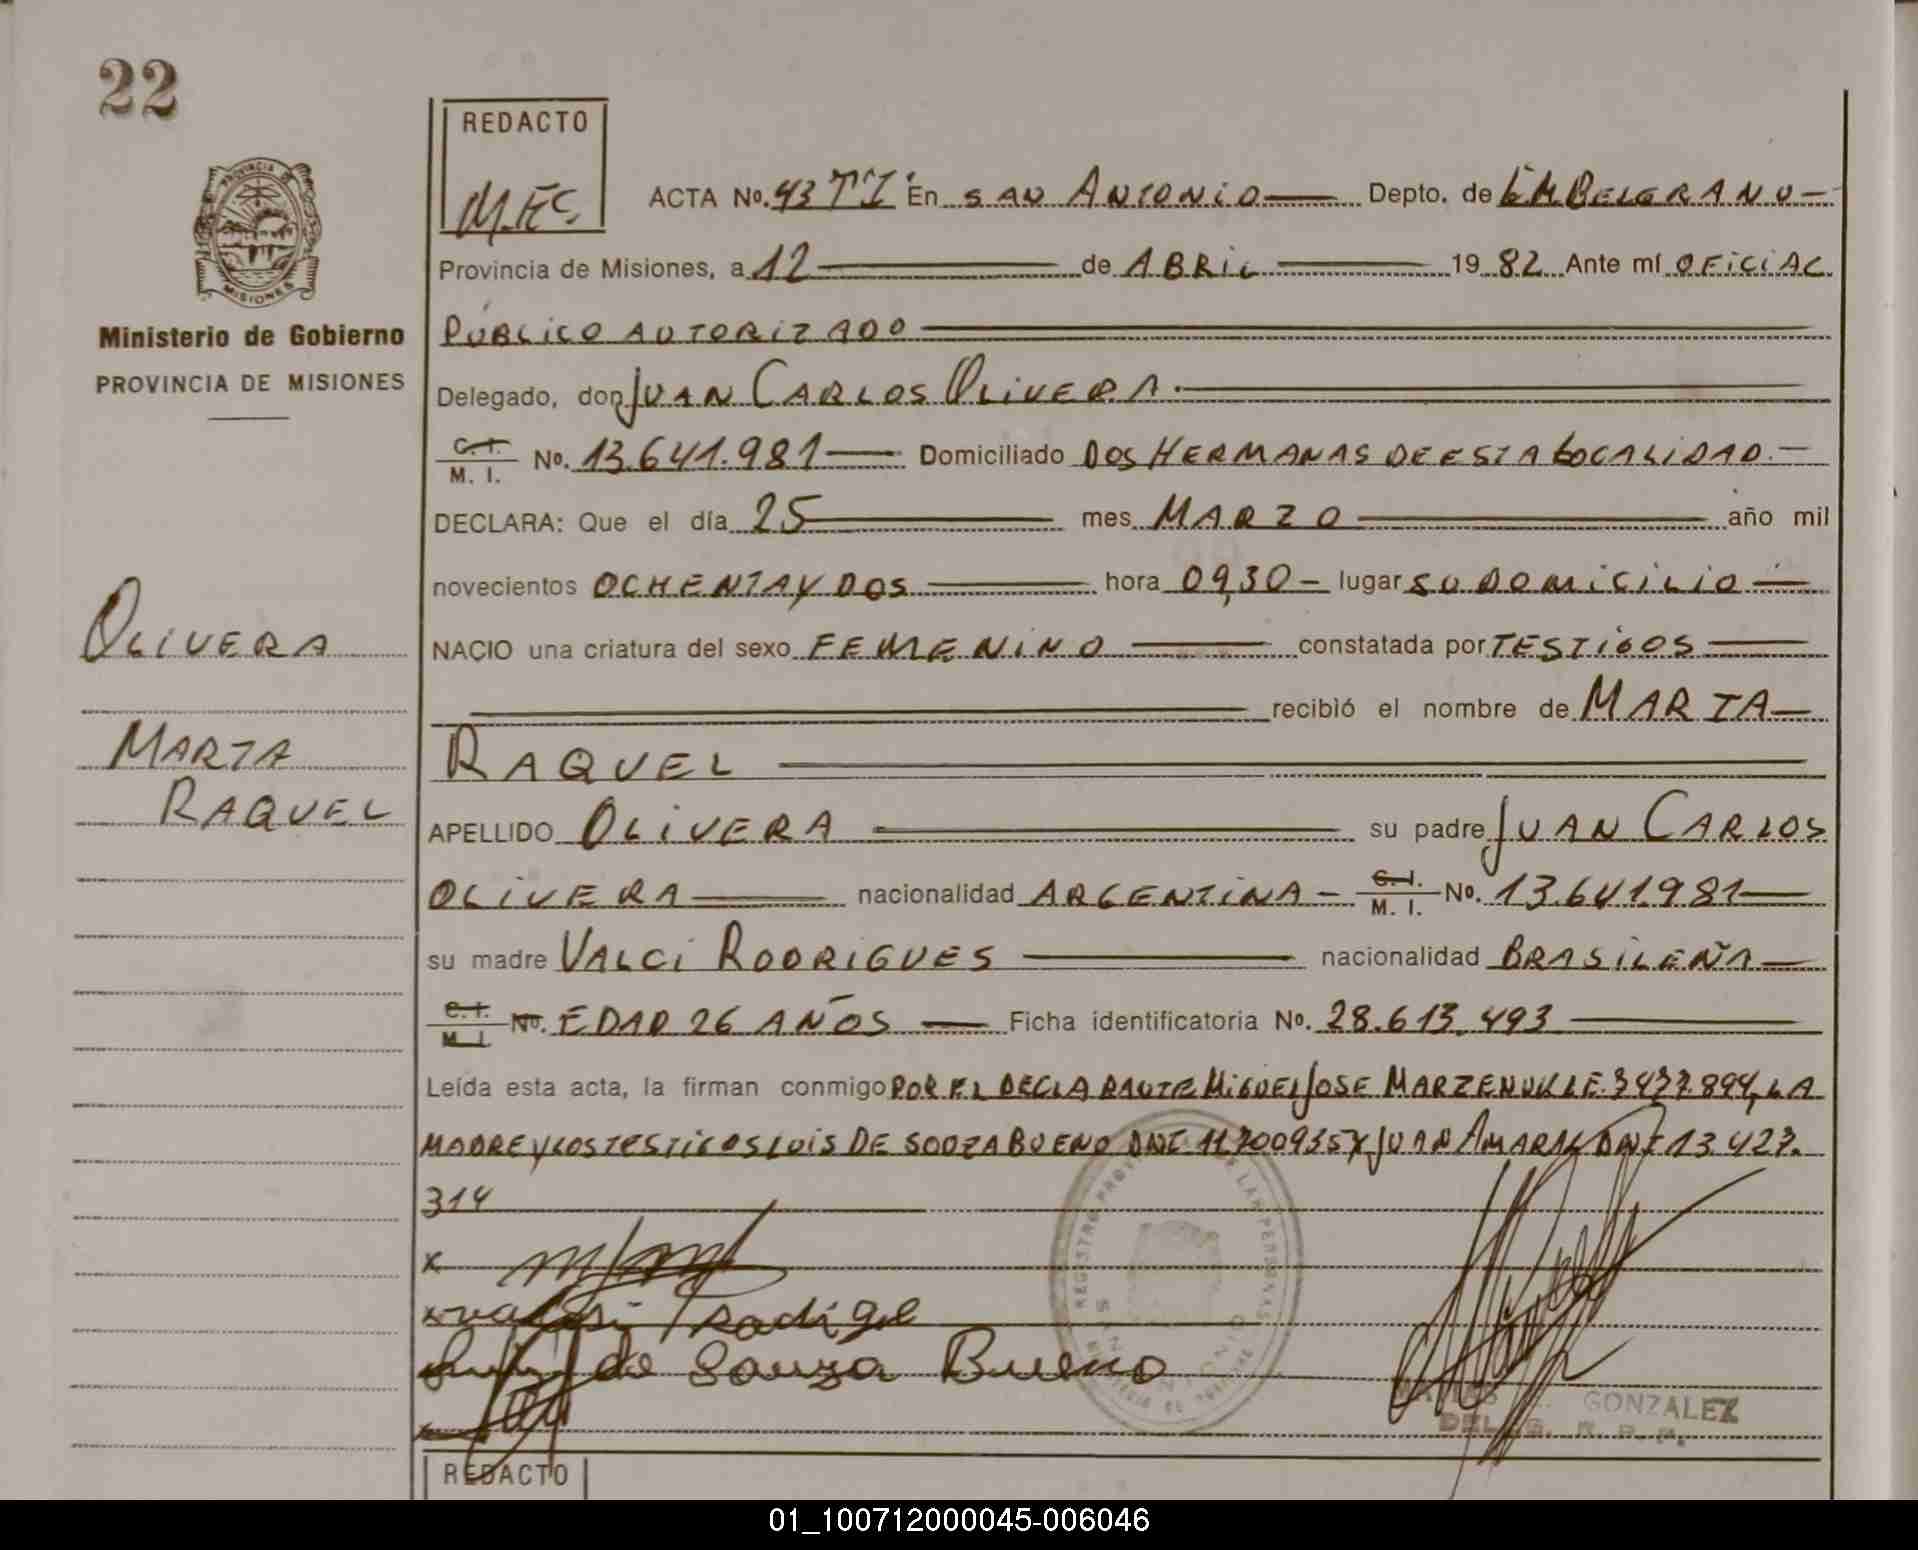 22
REDACTO
M.E.C.
ACTA No. 43 TI En SAN ANTONIO Depto. de G.M. BELGRANO
PROVINCIA DE
MISIONES
Ministerio de Gobierno
PROVINCIA DE MISIONES
Provincia de Misiones, a 12 de ABRIL 1982 Ante mí OFICIAL
PÚBLICO AUTORIZADO
Delegado, don JUAN CARLOS OLIVERA.
C. I.
M. I. No. 13.641.981 Domiciliado DOS HERMANAS DE ESTA LOCALIDAD.
DECLARA: Que el día 25 mes MARZO año mil
novecientos OCHENTA Y DOS hora 09,30 lugar SU DOMICILIO
OLIVERA
NACIO una criatura del sexo FEMENINO constatada por TESTIGOS
recibió el nombre de MARTA
MARTA
RAQUEL
RAQUEL
APELLIDO OLIVERA su padre JUAN CARLOS
OLIVERA nacionalidad ARGENTINA C. I.
M. I. No. 13.641.981
su madre VALCI RODRIGUES nacionalidad BRASILEÑA
C. I.
M. I. No. EDAD 26 AÑOS Ficha identificatoria No. 28.613.493
Leída esta acta, la firman conmigo POR EL DECLARANTE MIGUEL JOSE MARZENUK LE. 3477.894, LA
MADRE Y LOS TESTIGOS LUIS DE SOUZA BUENO DNI 11700935 Y JUAN AMARAL DNI 13.427.
314
x
x Radige
de Souza Bueno
x
REGISTRO PROVINCIAL DE LAS PERSONAS
SAN ANTONIO
GONZALEZ
DELEG. R. P. P.
REDACTO
01_100712000045-006046